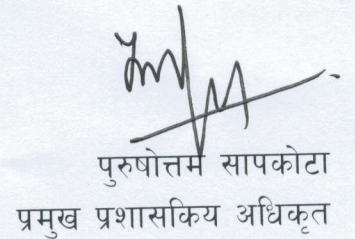 पुरुषोत्तम सापकोटा
प्रमुख प्रशासकिय अधिकृत